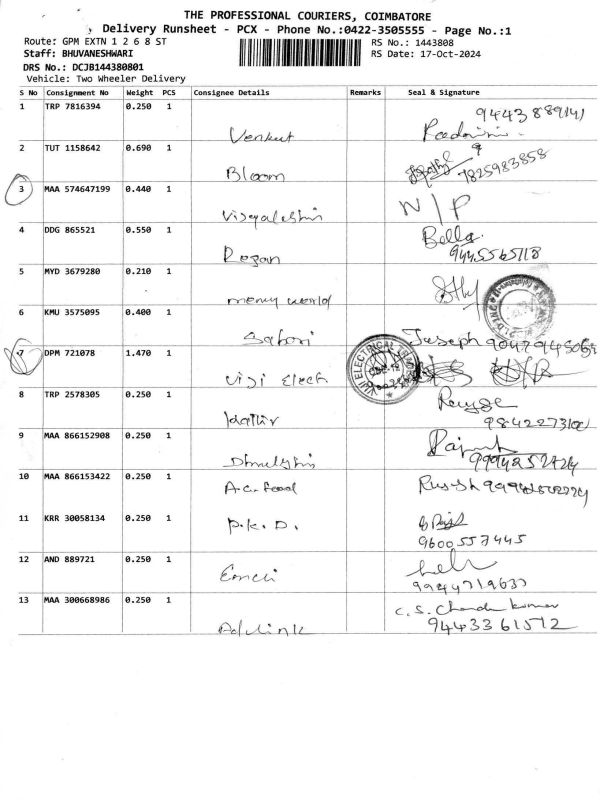 THE PROFESSIONAL COURIERS, COIMBATORE
Delivery Runsheet - PCX - Phone No.:0422-3505555 - Page No.:1
Route: GPM EXTN 1 2 6 8 ST RS No.: 1443808
Staff: BHUVANESHWARI RS Date: 17-Oct-2024
DRS No.: DCJB144380801
Vehicle: Two Wheeler Delivery
S No Consignment No Weight PCS Consignee Details Remarks Seal & Signature
1 TRP 7816394 0.250 1
Venkut
2 TUT 1158642 0.690 1
Bloom 7825983858
3 MAA 574647199 0.440 1 N/P
4 DDG 865521 0.550 1 Bella
Rogan
5 MYD 3679280 0.210 1
memy world
6 KMU 3575095 0.400 1
Joseph
7 DPM 721078 1.470 1
Viji Elect
8 TRP 2578305 0.250 1
9 MAA 866152908 0.250 1
10 MAA 866153422 0.250 1
A.C. food
11 KRR 30058134 0.250 1
P.K.D. 9600557445
12 AND 889721 0.250 1
9944719637
13 MAA 300668986 0.250 1 C.S. Chandu kumar
Adlink 9443361572